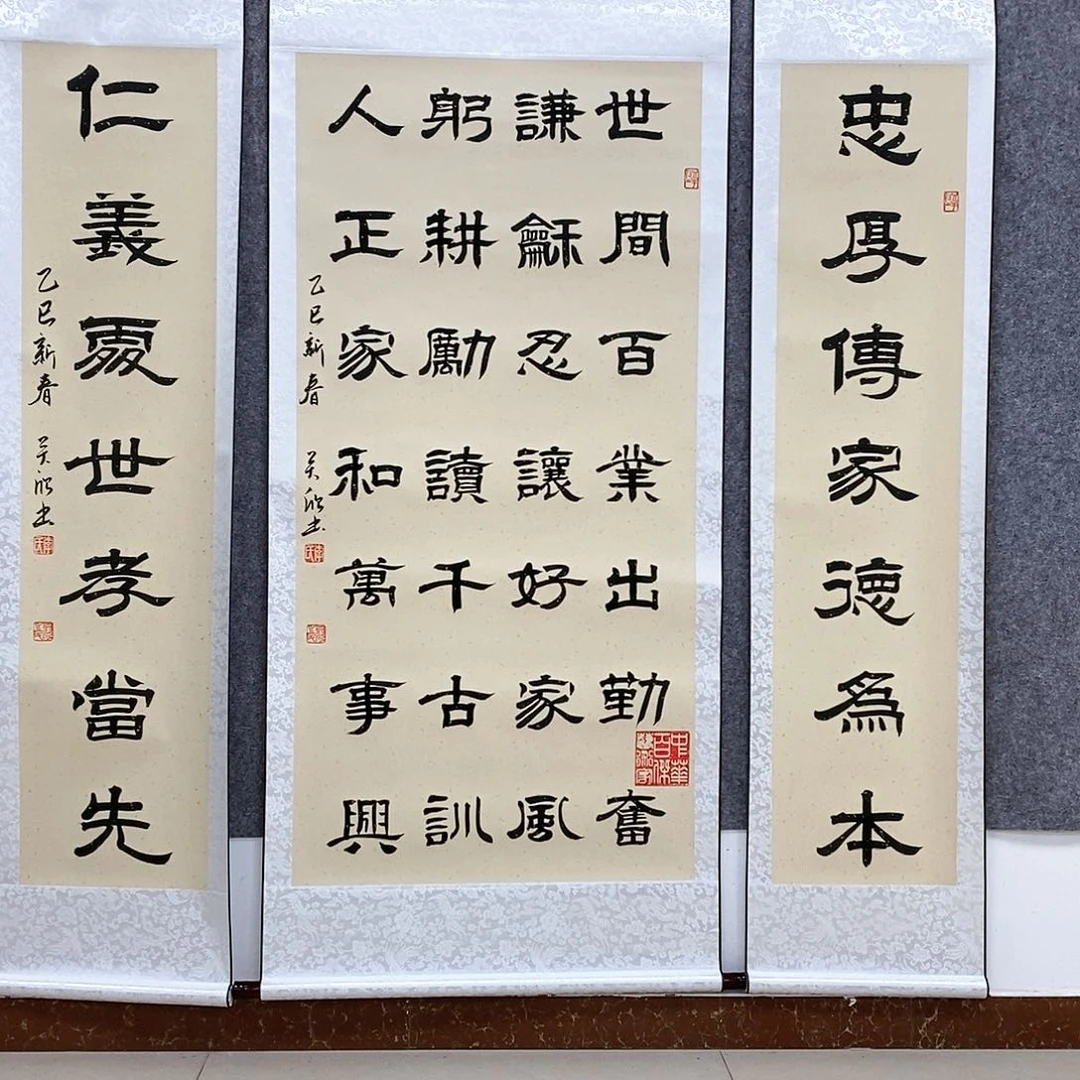 忠厚傳家德為本
世間百業出勤奮
謙龢忍讓好家風
躬耕勵讀千古訓
人正家和萬事興
乙巳新春 吴欣书
中華百傑
仁義處世孝當先
乙巳新春 吴欣书